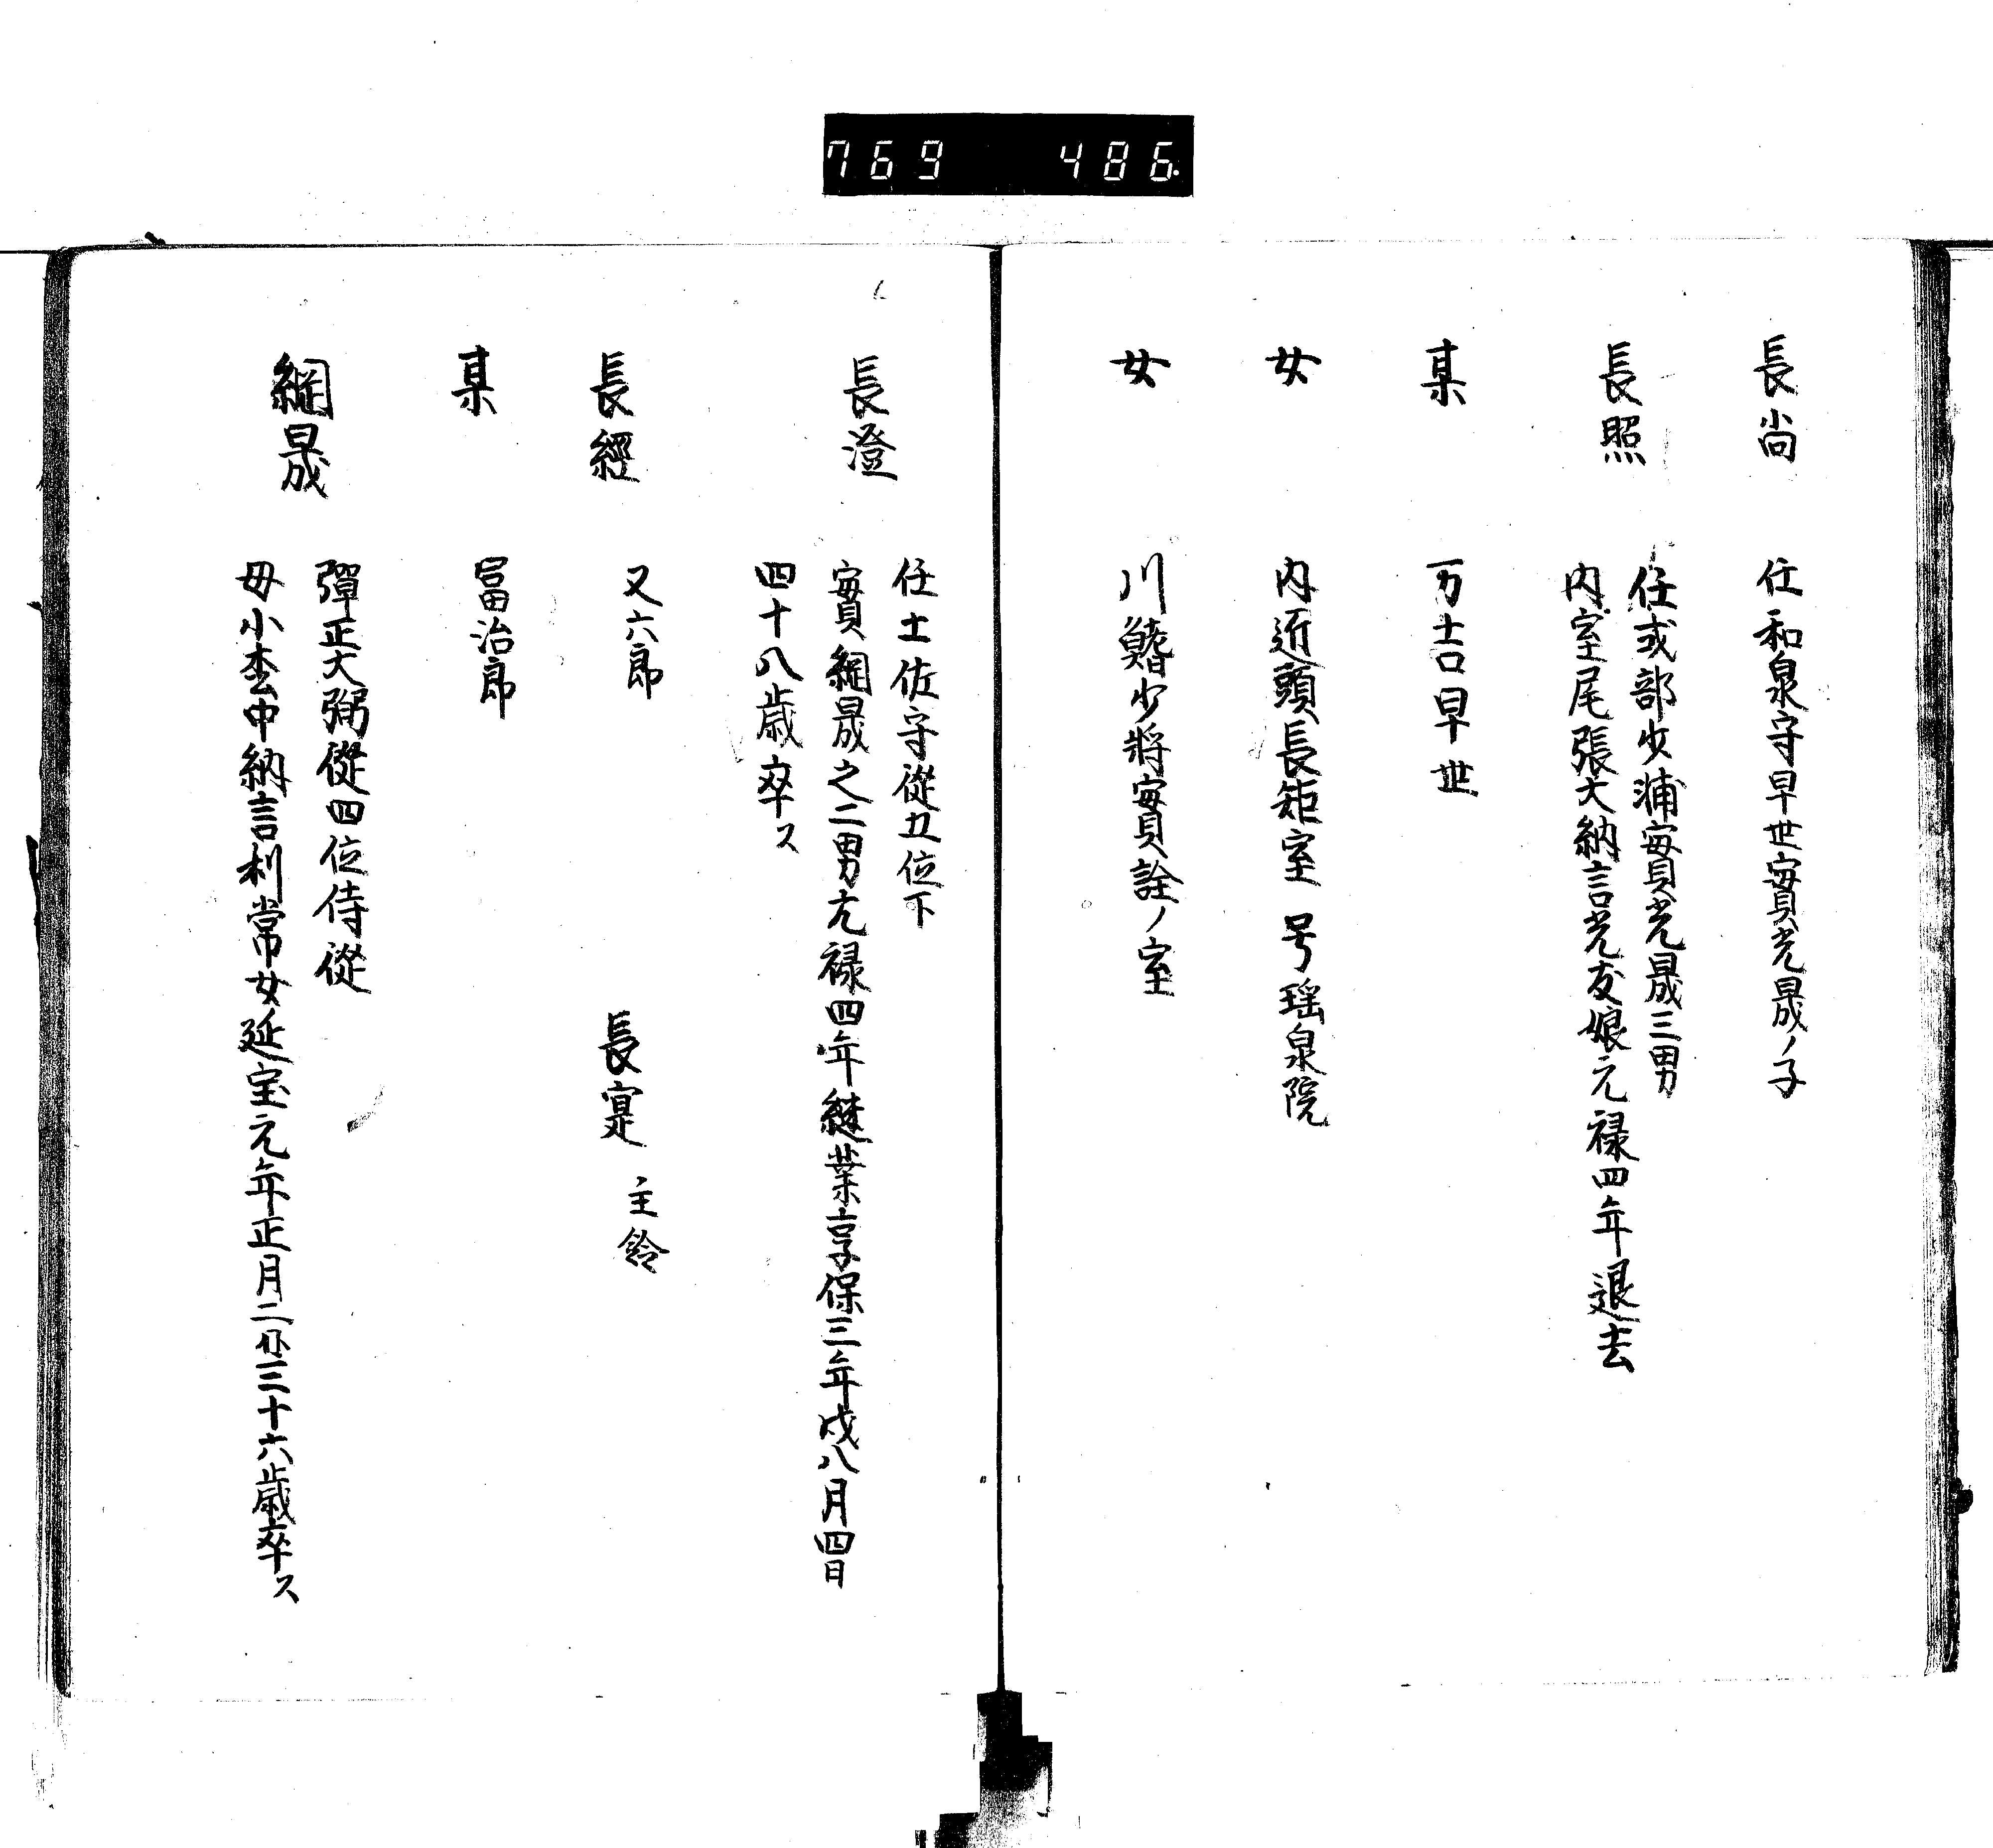 769 486
長尚
任和泉守早世實光晟ノ子
長照
任式部少浦實光晟三男
内室尾張大納言光友娘元禄四年退去
某
万吉早世
女
内近頭長矩室 号瑶泉院
女
川鰭少將實詮ノ室
長澄
任土佐守從五位下
實綱晟之二男元禄四年継業享保三年戊八月四日
四十八歳卒ス
長經
又六郎
長寔 主鈴
某
冨治郎
綱晟
彈正大弼從四位侍從
母小松中納言利常女延宝元年正月二 三十六歳卒ス